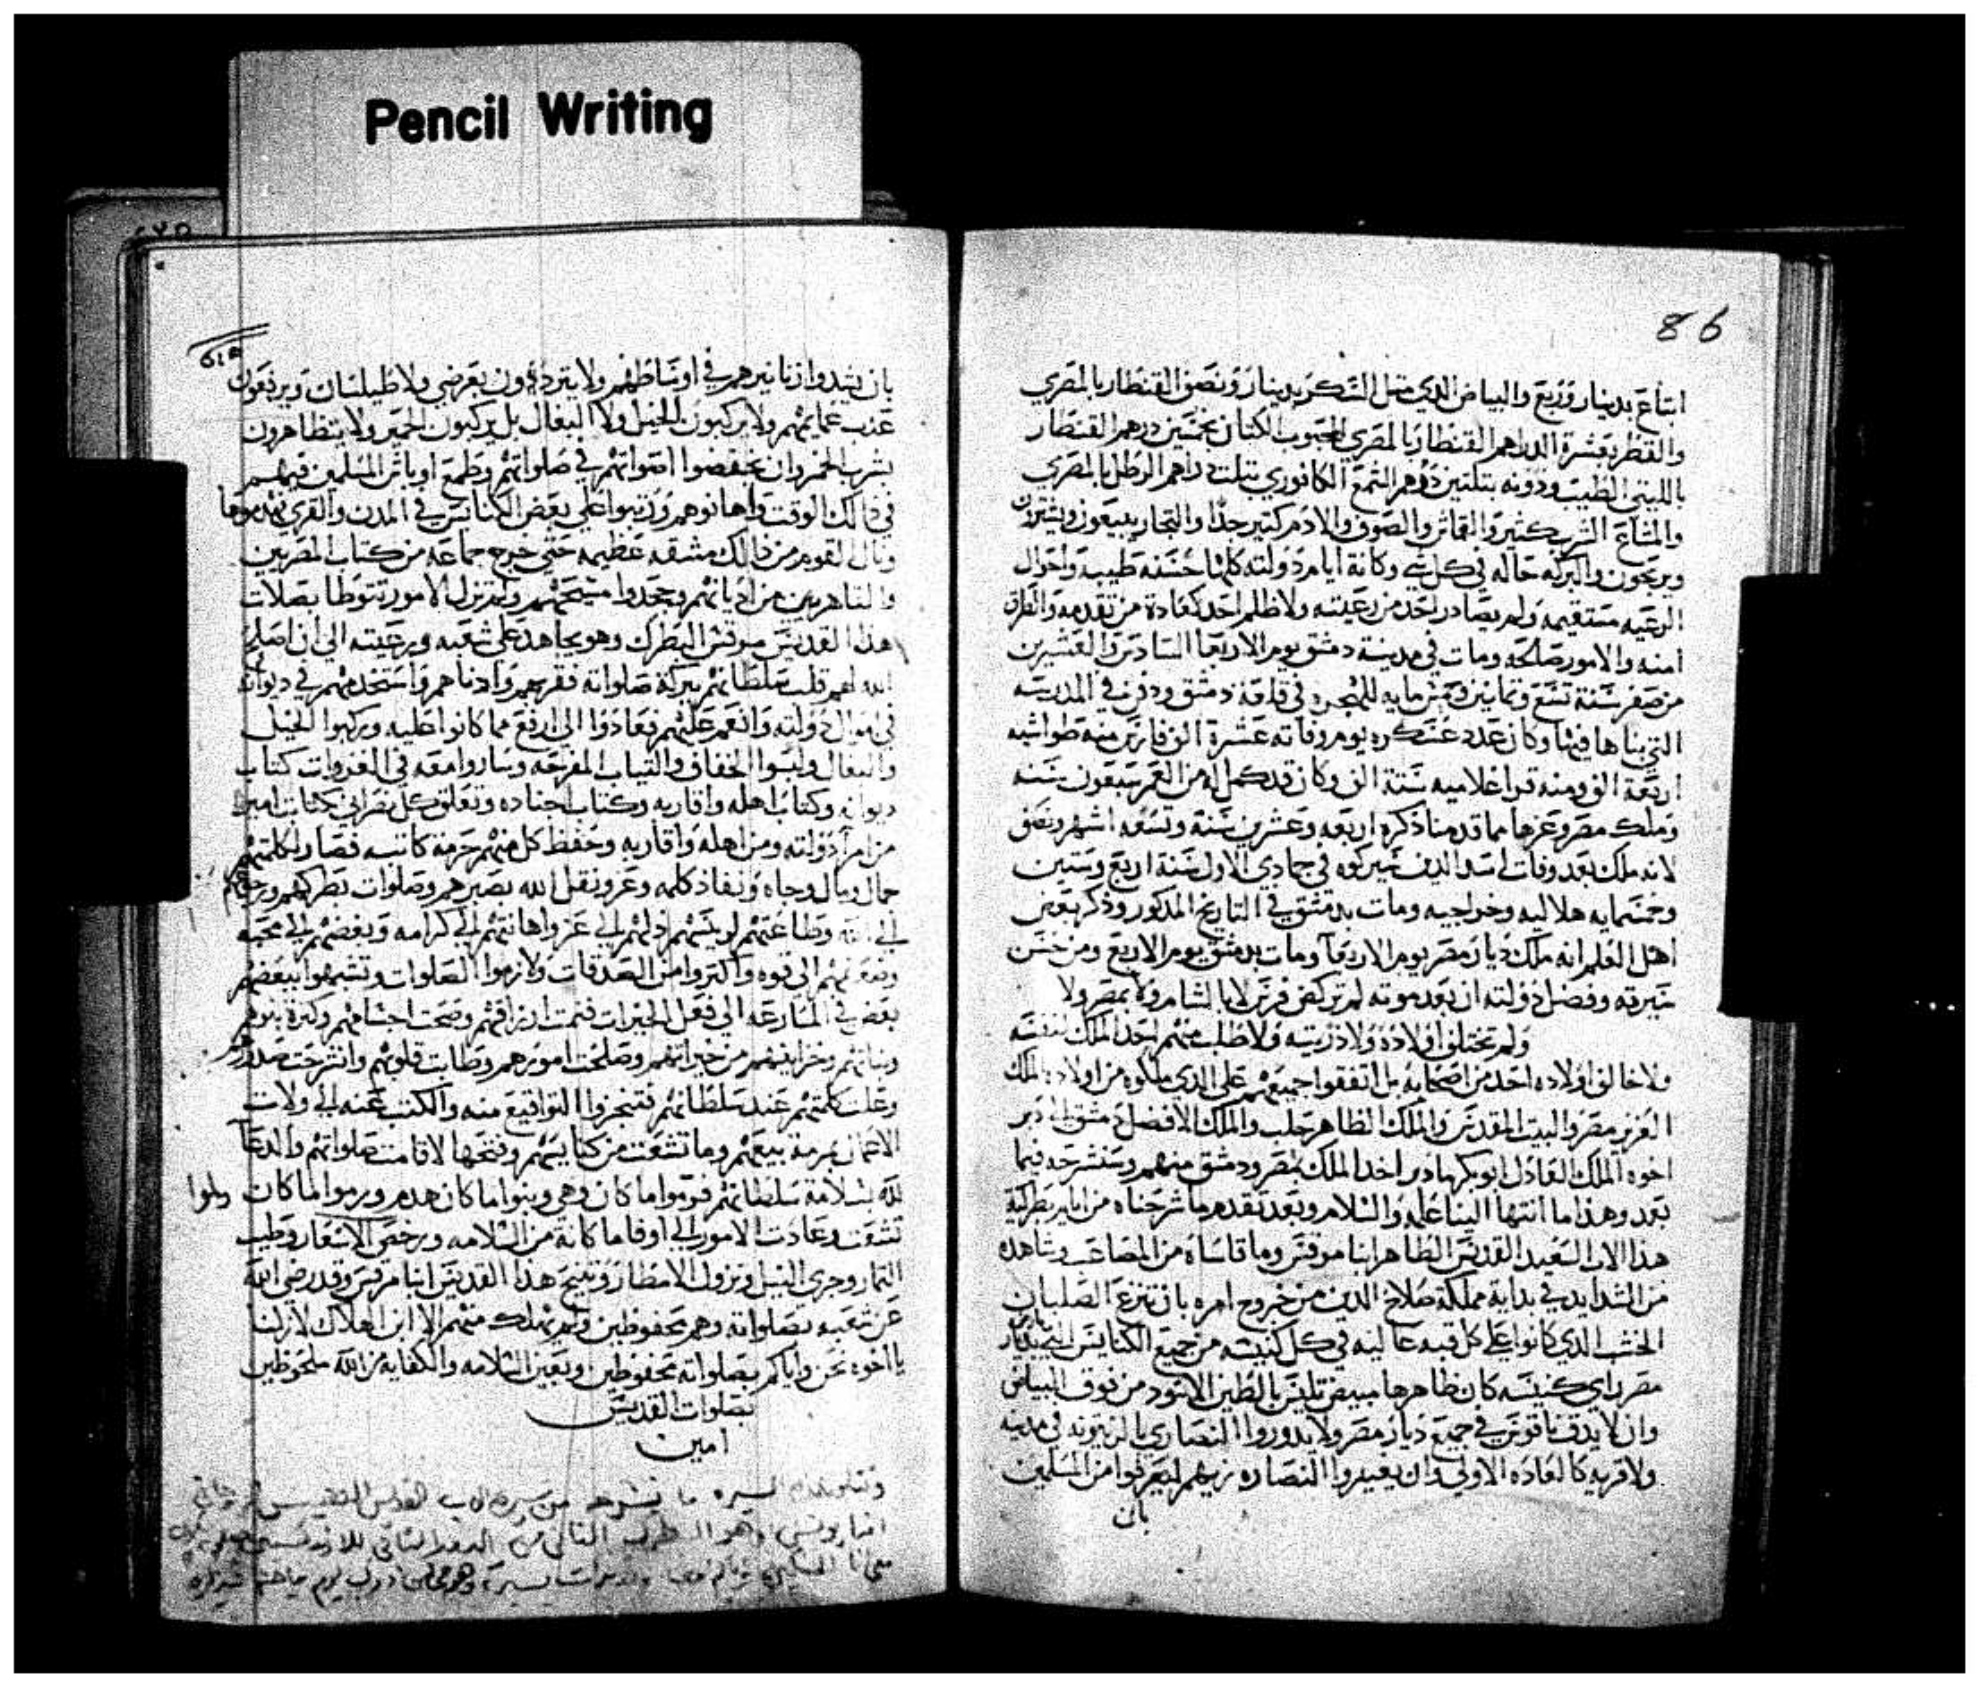 Pencil Writing
86
ابتاع بدينار وربع والبياض الذي مثل السكر بدينار ونصف القنطار بالمصري
والقطر بعشرة الدراهم القنطار بالمصري الحبوب الكتان بخمسين درهم القنطار
بالليثي الطيب ودونه بتلتين درهم الشمع الكافوري بتلت دراهم الرطل بالمصري
والمتاع الشرب كتير والقماش والصوف والادم كتير جدا والتجار يبيعون ويشترون
ويربحون والبركه حاله في كل شي وكانة ايام دولته كلها حسنه طيبه واحوال
الرعيه مستقيمه ولم يصادر احد من رعيته ولا ظلم احد كعادة من تقدمه والطرق
امنه والامور صالحه ومات في مدينة دمشق يوم الاربعا السادس والعشرين
من صفر سنة تسع وتمانين وخمس مايه للهجره في قلعة دمشق ودفن في المدرسه
التي بناها فيها وكان عدد عسكره يوم وفاته عشرة الف فارس منه طواشيه
اربعة الف ومنه قراغلاميه ستة الف وكان قد كمل له من العمر سبعون سنه
وملك مصر وغزها مما قدمنا ذكره اربعه وعشرين سنة وتسعه اشهر ونصف
لانه ملك بعد وفات اسد الدين شيركوه في جمادي الاول سنة اربع وستين
وخمسمايه هلاليه وخراجيه ومات بدمشق في التاريخ المدكور وذكر بعض
اهل العلم انه ملك ديار مصر يوم الاربعا ومات بدمشق يوم الاربع ومن حسن
سيرته وفضل دولته ان بعد موته لم تركض فرس لا بالشام ولا بمصر ولا
ولم تختلف اولاده ولا ذريته ولا طلب منهم احد الملك لنفسه
ولا خالف اولاده احد من اصحابه بل اتفقوا جميعهم على الذي ملكوه من اولاده الملك
العزيز مصر والبيت المقدس والملك الظاهر حلب والملك الافضل دمشق الي دبر
اخوه الملك العادل ابو بكر بهادر اخد الملك بمصر ودمشق منهم وسنشرحه فيما
بعد وهذا ما انتها الينا علمه والسلام وبعد تقدم ما شرحناه من ايام بطركية
هذا الاب السعيد القديس الطاهر انبا مرقس وما قاساه من المصاعب وشاهده
من الشدايد في بداية مملكة صلاح الدين من خروج امره بان تنزع الصلبان
الخشب الذي كانوا على كل قبه عاليه في كل كنيسه من جميع الكنايس التي بديار
مصر واي كنيسه كان ظاهرها مبيض تليس بالطين الاسود من فوق البياض
وان لا يدق ناقوس في جميع ديار مصر ولا يدوروا النصاري بالزيتونه في مدينه
ولا قريه كالعاده الاولي وان يغيروا النصاره زيهم ليعرفوا من المسلمين
بان
بان يشدوا زنانيرهم في اوساطهم ولا يتردون بعرضي ولا طيلسان ويرفعون
عذب عمايمهم ولا يركبون الخيل ولا البغال بل يركبون الحمير ولا يتظاهرون
بشرب الخمر وان يخفضوا اصواتهم في صلواتهم وطمع اوباش المسلمين فيهم
في ذالك الوقت واهانوهم ووتبوا على بعض الكنايس في المدن والقري يهدموها
ونال القوم من ذالك مشقه عظيمه حتي خرج جماعه من كتاب المصريين
والقاهريين من اديانهم وجحدوا مسيحيتهم ولم تزل الامور تتوطا بصلات
هذا القديس مرقس البطرك وهو يجاهد على شعبه ورعيته الي ان اصلح
الله لهم قلب سلطانهم ببركة صلواته فقربهم وادناهم واستخدمهم في ديوانه
في اموال دولته وانعم عليهم فعادوا الي ارفع مما كانوا عليه وركبوا الخيل
والبغال ولبسوا الخفاف والتياب المفرجه وساروا معه في الغزوات كتاب
ديوانه وكتاب اهله واقاربه وكتاب اجناده وتعلق كل نصراني بكتابت امير
من امرا دولته ومن اهله واقاربه وحفظ كل منهم حرمة كاتبه فصار لكلمتهم
حمال ومال وجاه ونفاذ كلمه وعز ونقل الله بصبرهم وصلوات بطركهم ورجوعهم
الي الله وطاعتهم لرييسهم ذلهم الي عز واهانتهم الي كرامه وبغضهم الي محبه
وضعفهم الي قوه واكتروا من الصدقات ولازموا الصلوات وتشبهوا ببعضهم
بعض في المسارعه الي فعل الخيرات فنمت ارزاقهم وصحت اجسامهم وكترة بنوهم
وبناتهم وخزاينهم من خيراتهم وصلحت امورهم وطابت قلوبهم وانشرحت صدورهم
وعلت كلمتهم عند سلطانهم فتنجزوا التواقيع منه والكتب عنه الي ولات
الاعمال بمرمة بيعهم وما تشعت من كنايسهم وفتحها لاقامت صلواتهم والدعا
لله بسلامة سلطانهم فرموا ما كان وهي وبنوا ما كان هدم ورموا ما كان
تشعت وعادت الامور الي اوفا ما كانة من السلامه ورخص الاسعار وطيب
التمار وجري النيل ونزول الامطار وتنيح هذا القديس انبا مرقس وقد رضي الله
عن شعبه بصلواته وهم محفوظين ولم يهلك منهم الا ابن الهلاك لازلنا
يا اخوه نحن واياكم بصلواته محفوظين وبعين السلامه والكفايه من الله ملحوظين
بصلوات القديس
امين